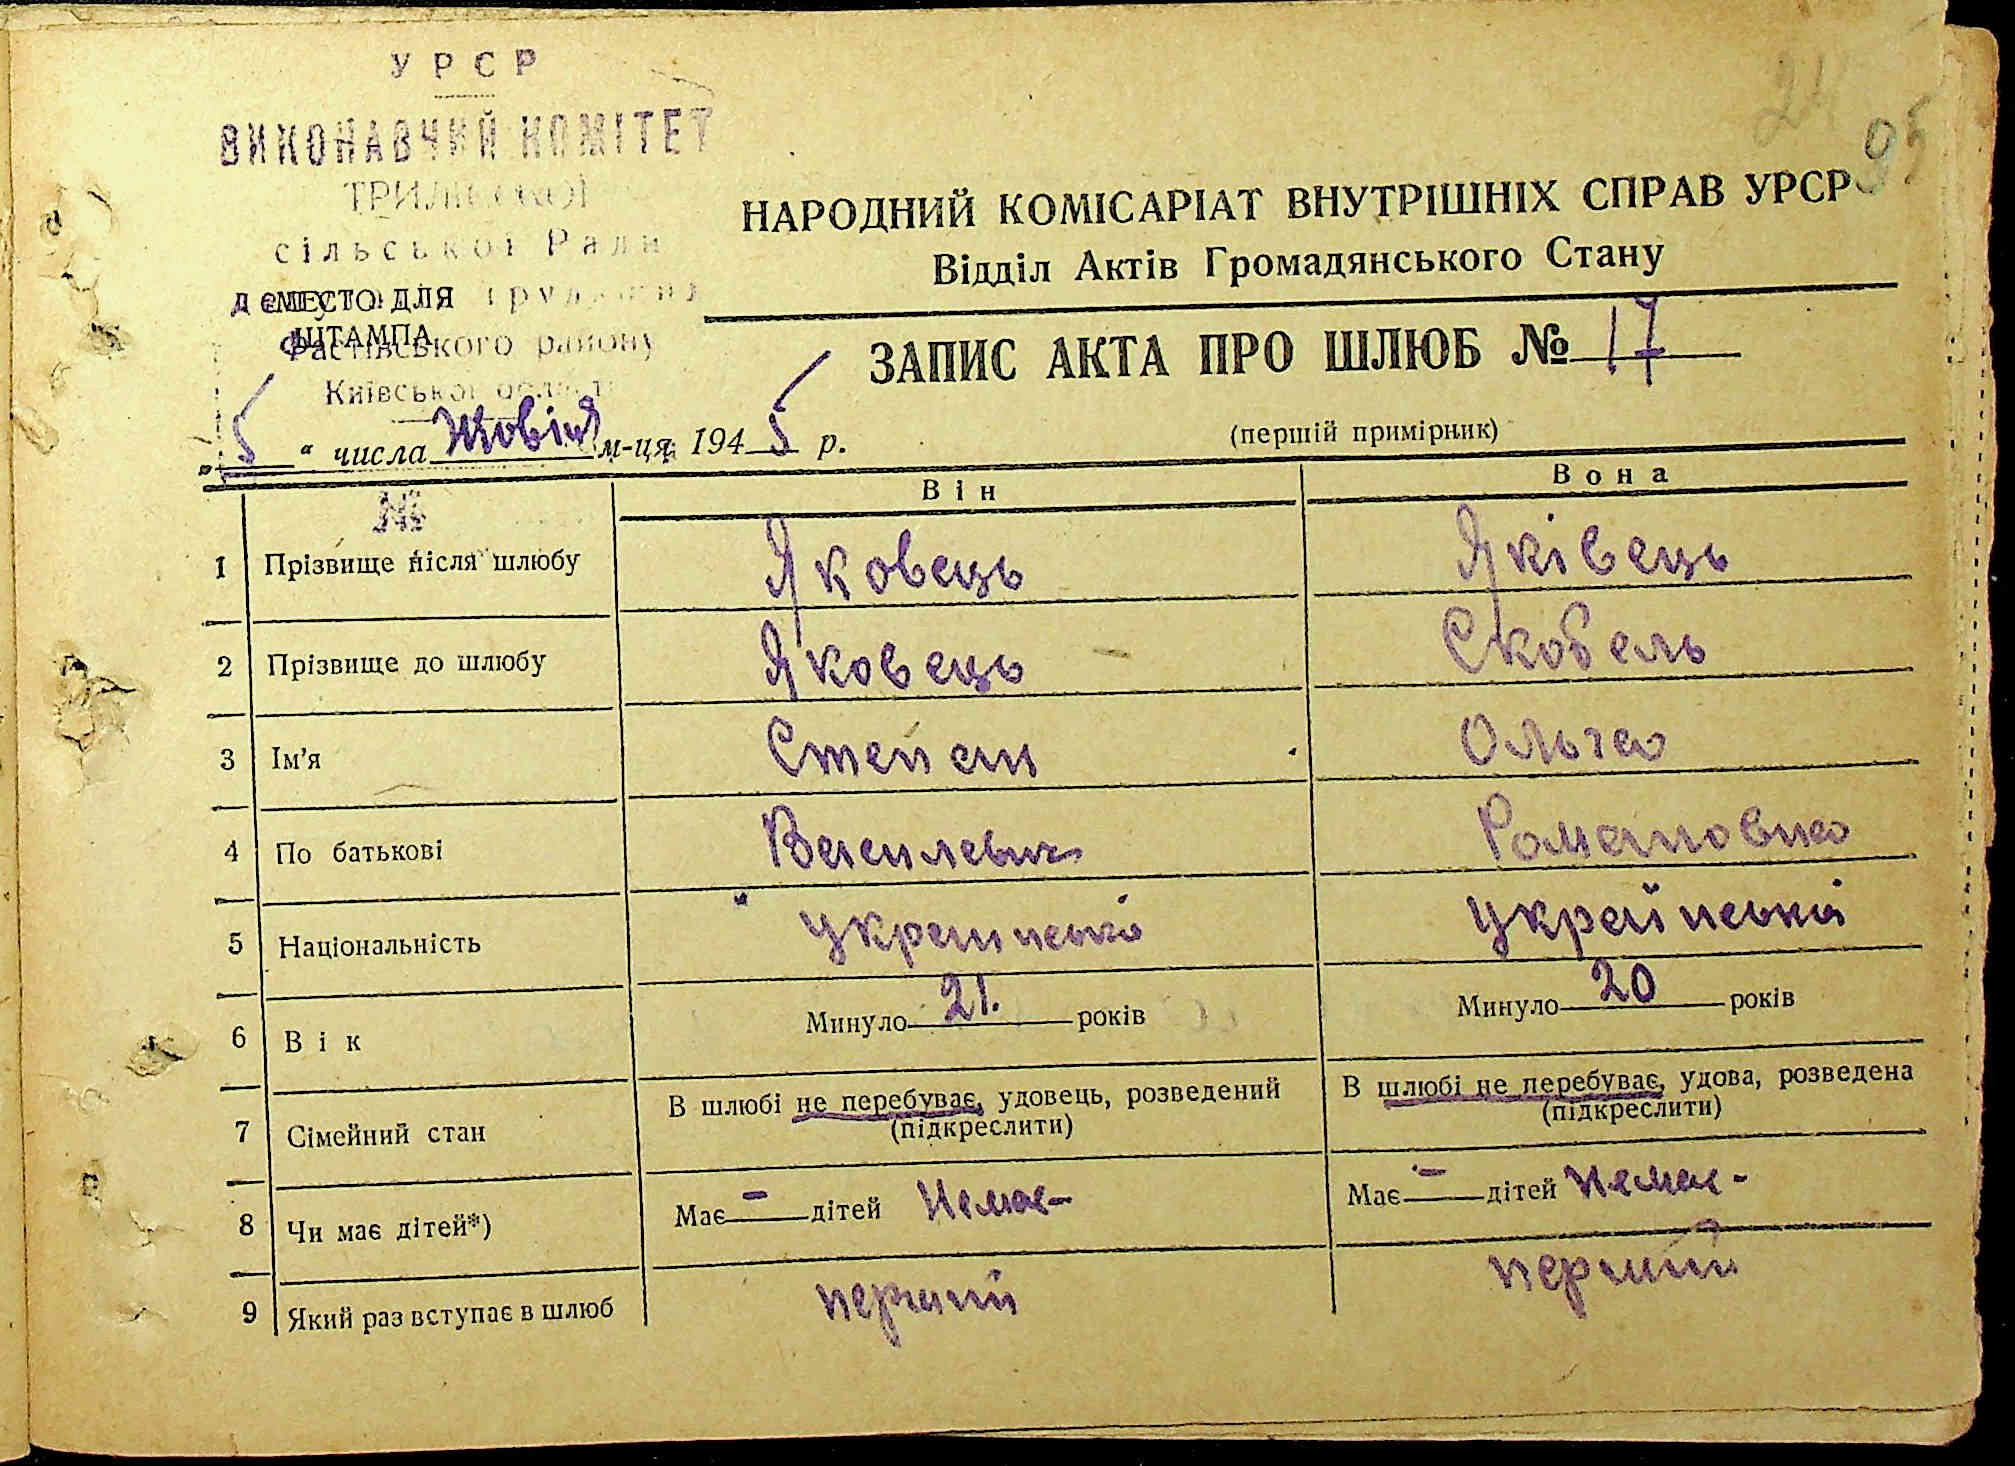 УРСР
ВИКОНАВЧИЙ КОМІТЕТ
ТРИЛІСЬКОЇ
сільської Ради
МЕСТО ДЛЯ
ШТАМПА
Фастівського району
Київської області
24
95
НАРОДНИЙ КОМІСАРІАТ ВНУТРІШНІХ СПРАВ УРСР
Відділ Актів Громадянського Стану
ЗАПИС АКТА ПРО ШЛЮБ № 17
(перший примірник)
„5“ числа Жовтня м-ця 1945 р.
№
Він Вона
1 Прізвище після шлюбу Яковець Яківець
2 Прізвище до шлюбу Яковець Скобель
3 Ім'я Степан Ольга
4 По батькові Василевич Романовна
5 Національність Українська Українська
6 Вік Минуло 21. років Минуло 20 років
7 Сімейний стан В шлюбі не перебуває, удовець, розведений В шлюбі не перебуває, удова, розведена
(підкреслити) (підкреслити)
8 Чи має дітей*) Має – дітей Немає – Має – дітей немає -
9 Який раз вступає в шлюб перший перший